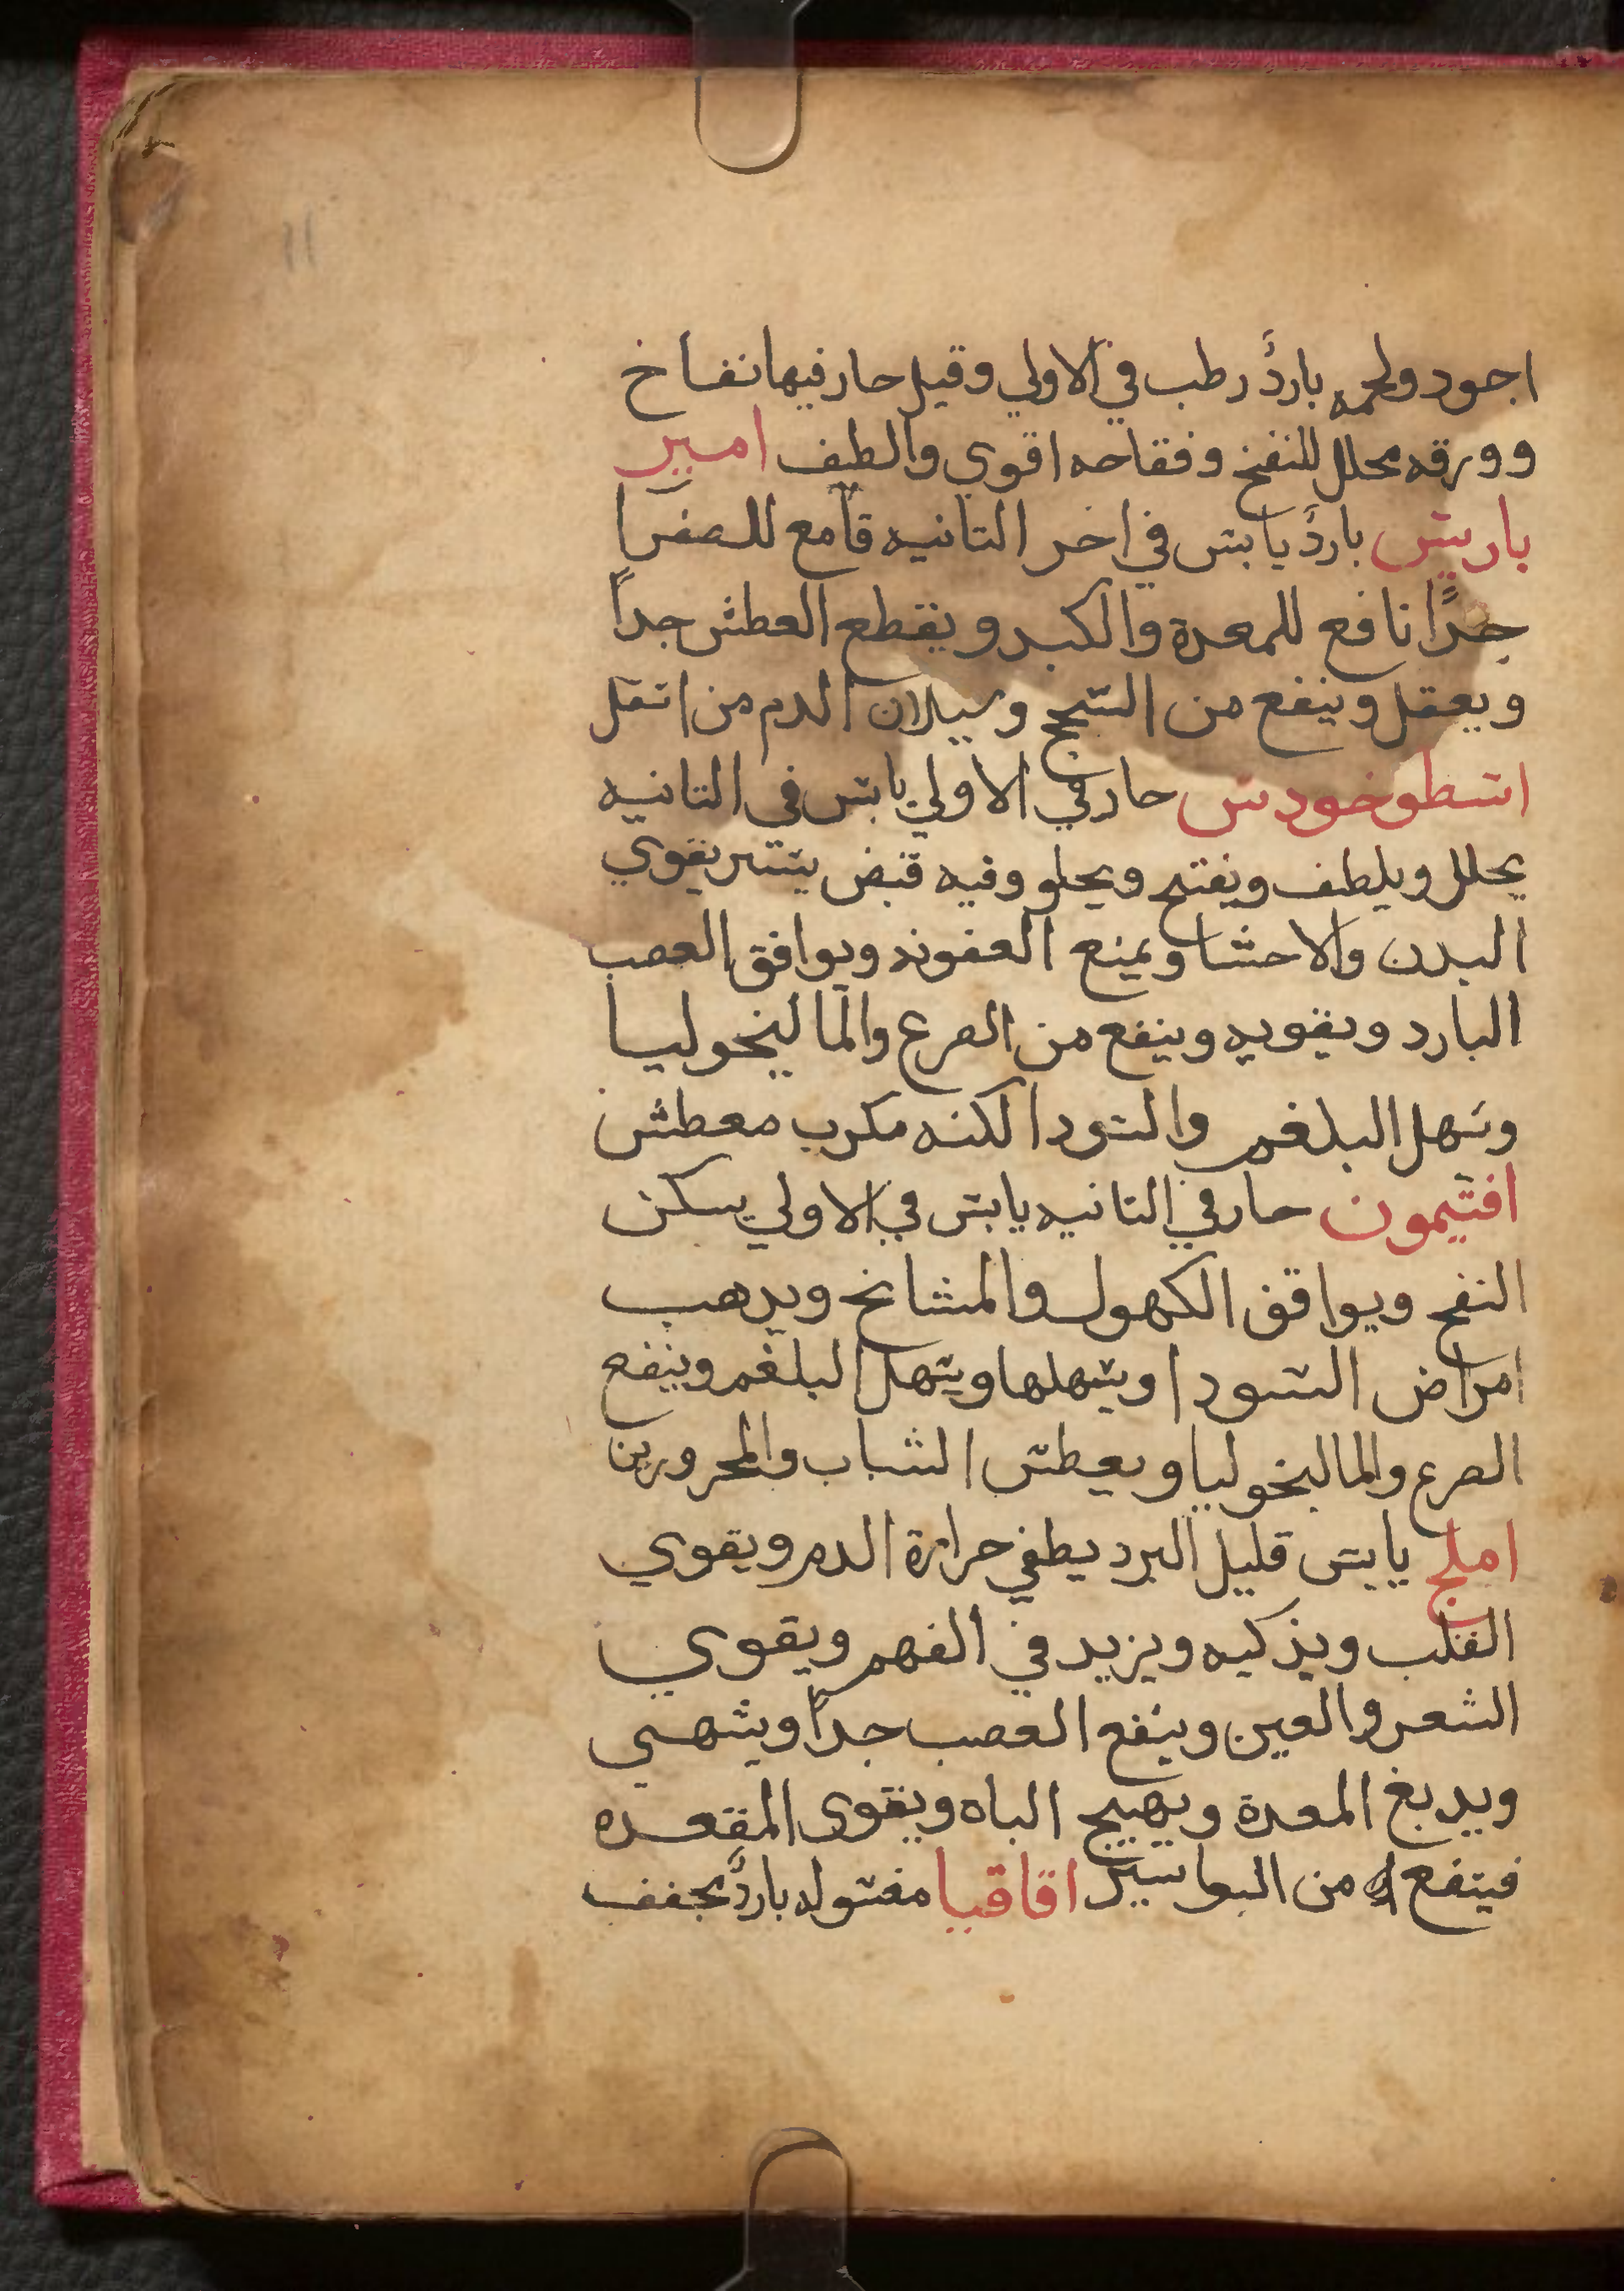 11
اجود ولحمه باردٌ رطب في الاولي وقيل حار فيها نفاخ
وورقه محلل للنفخ وفقاحه اقوي والطف امير
باريس باردٌ يابس في اخر الثانيه قامع للصفرا
جداً نافع للمعدة والكبد ويقطع العطش جداً
ويعقل وينفع من السحج وسيلان الدم من اسفل
اسطوخودس حار في الاولي يابس في الثانيه
يحلل ويلطف ويفتح ويجلو وفيه قبض يسير يقوي
البدن والاحشا ويمنع العفونه ويوافق العصب
البارد ويقويه وينفع من الصرع والمالنخوليا
وسهل البلغم والسودا لكنه مكرب معطش
افتيمون حار في الثانيه يابس في الاولي يسكن
النفخ ويوافق الكهول والمشائخ ويدهب
امراض السودا ويسهلها ويسهل البلغم وينفع
الصرع والمالنخوليا ويعطش الشباب والمحرورين
املج يابس قليل البرد يطفي حرارة الدم ويقوي
القلب ويذكيه ويزيد في الفهم ويقوي
الشعر والعين وينفع العصب جداً ويشهي
ويدبغ المعدة ويهيج الباه ويقوي المقعده
فينفع من البواسير اقاقيا مغسوله باردٌ يجفف